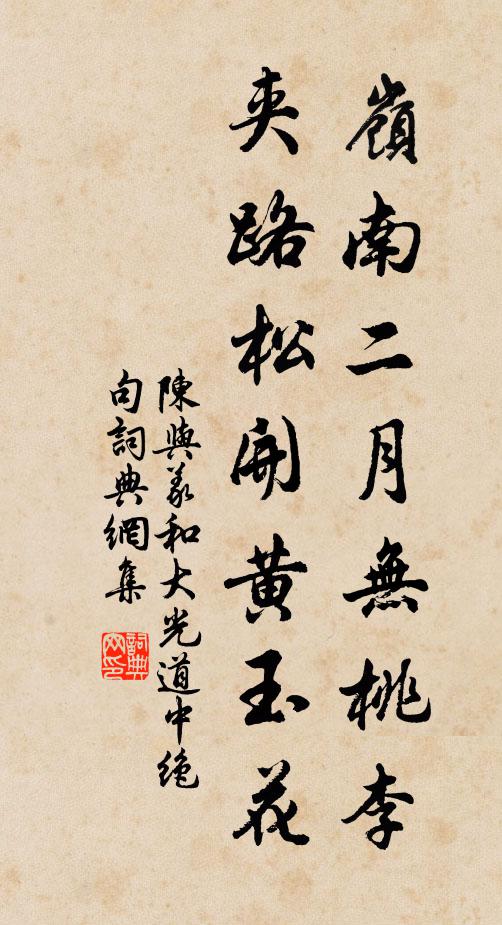 嶺南二月無桃李
夾路松開黃玉花
陳與義和大光道中絶
句詞典網集
詞典
網印